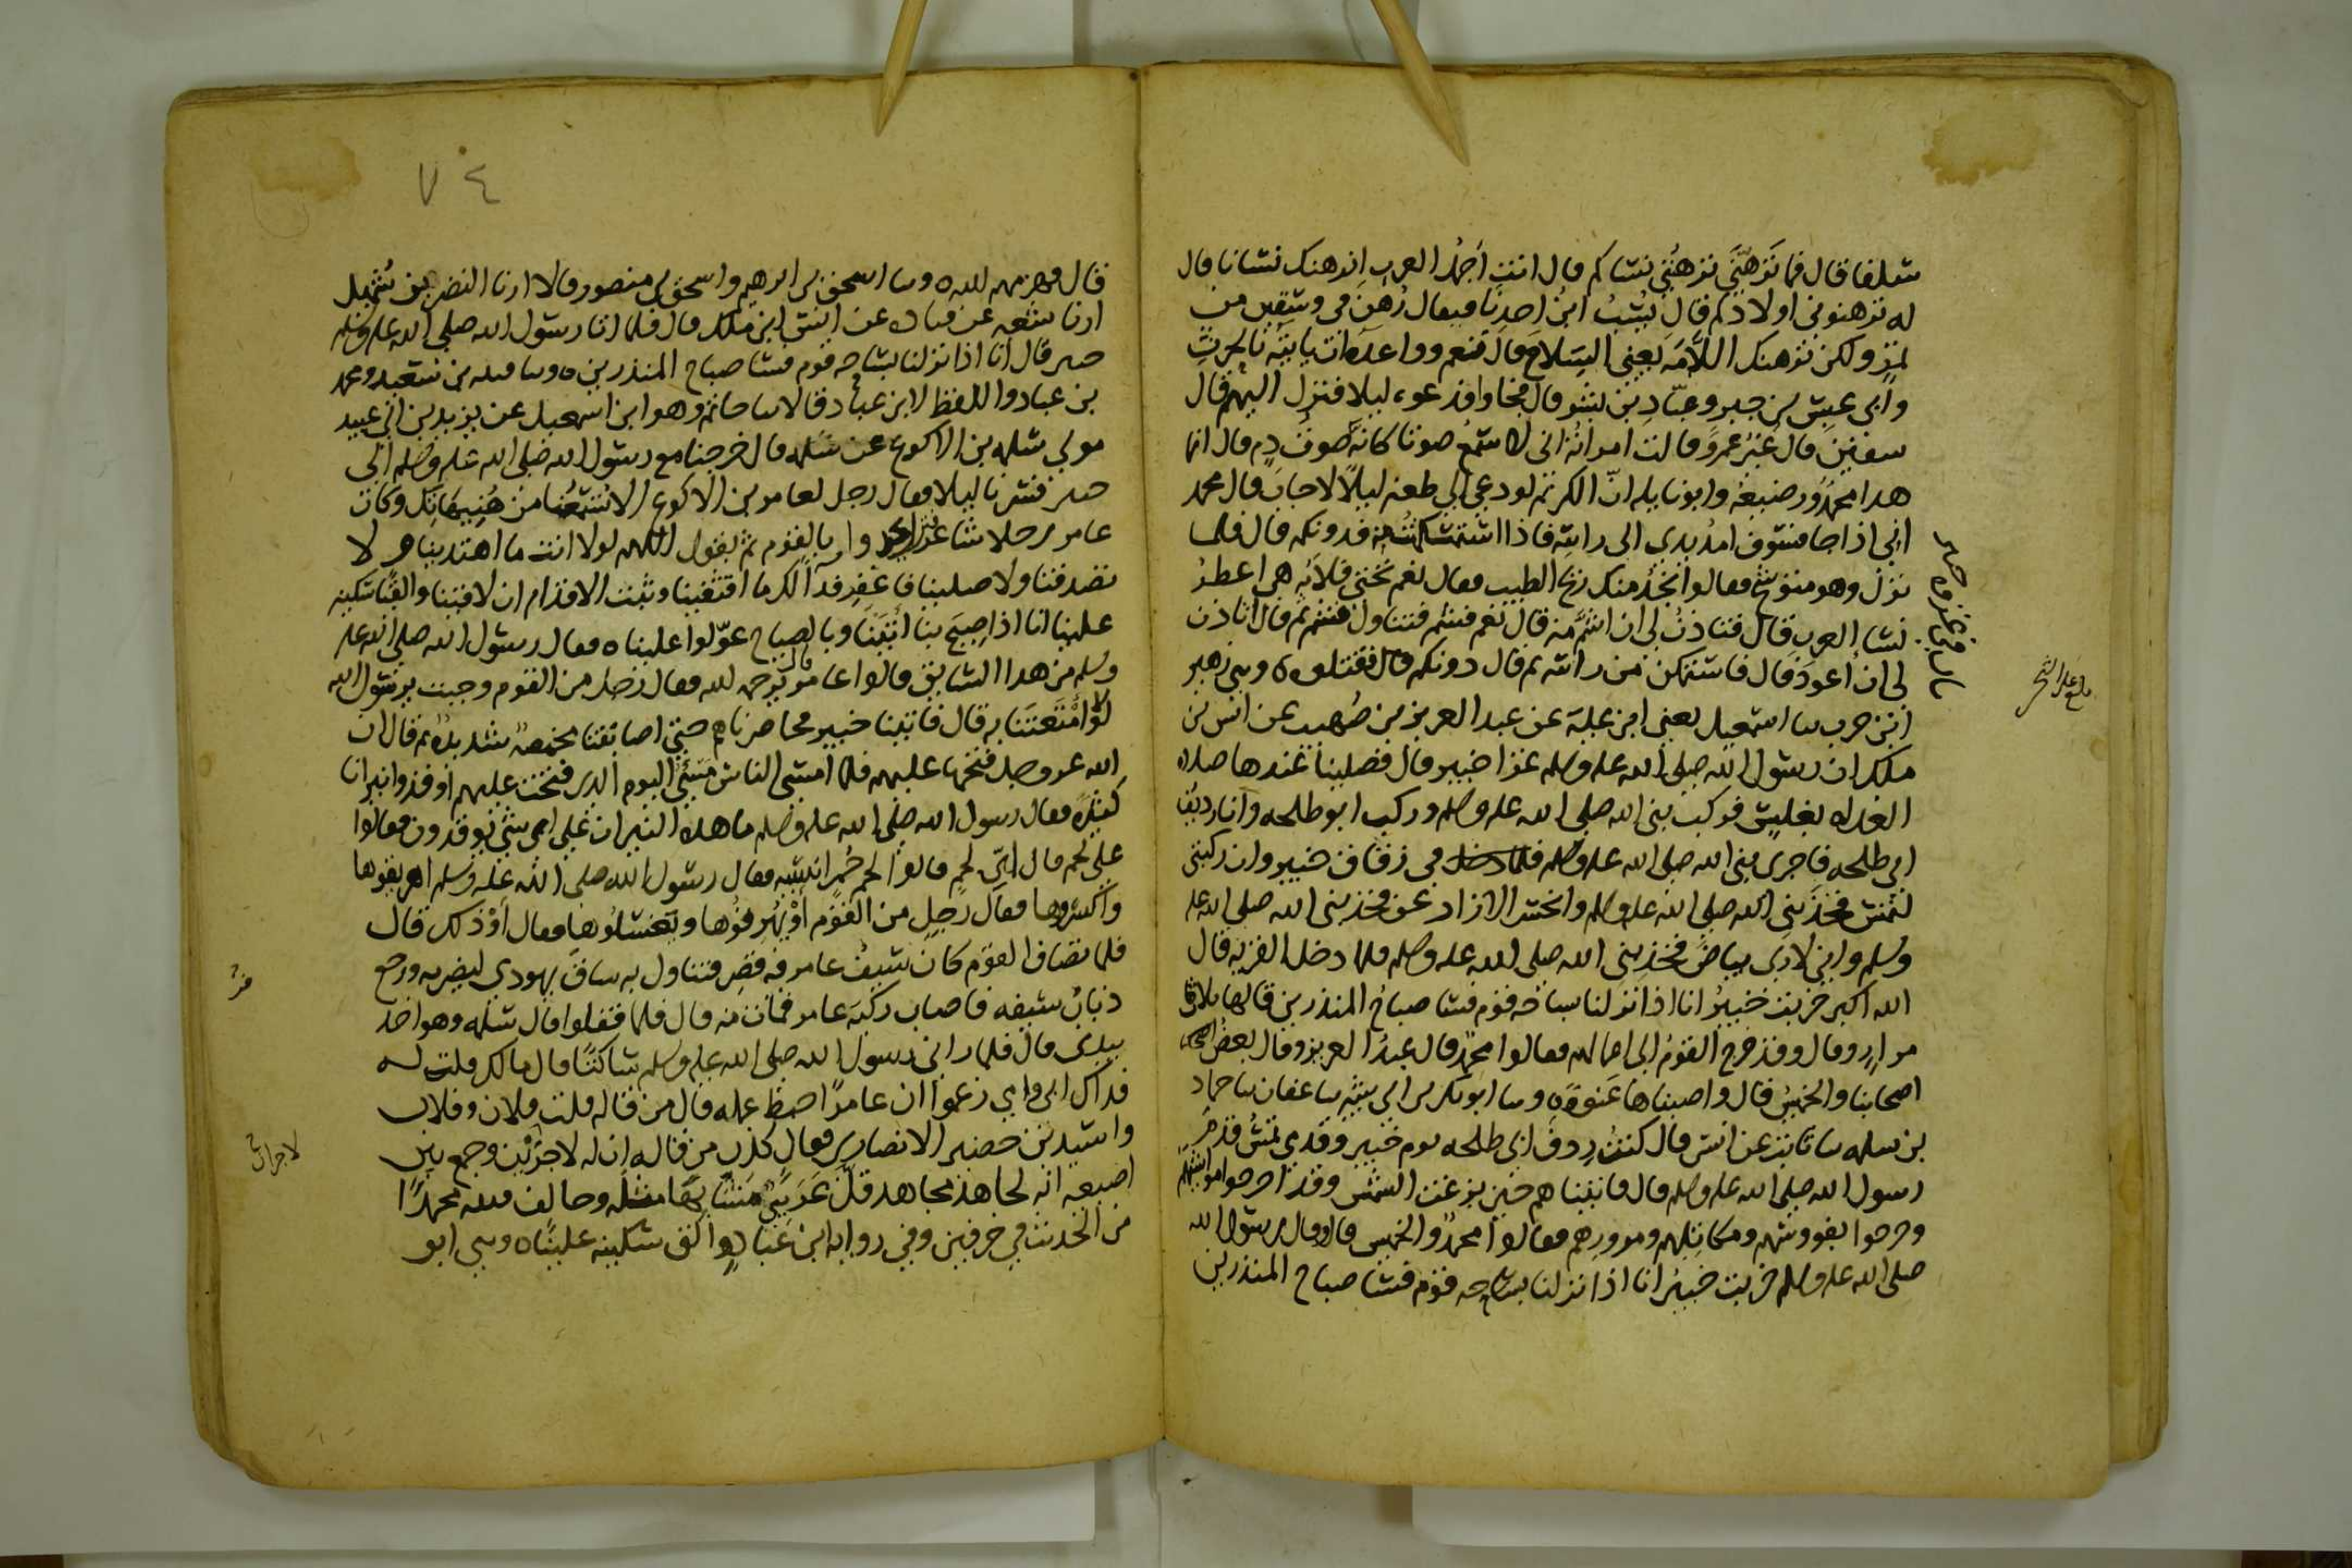 سلفا قال فما ترهنني ترهنني نساكم قال انت اجمل العرب انرهنك نسانا قال
له ترهنوني اولادكم قال يسب ابن احدنا فيقال رهن في وسقين من
تمر ولكن نرهنك اللأمة يعني السلاح قال فنعم وواعده ان ياتيه بالحرث
وابي عبس بن جبر وعباد بن بشر قال فجاوا فدعوه ليلا فنزل اليهم قال
سفين قال غير عمرو قالت له امراته اني لاسمع صوتا كانه صوت دم قال انما
هذا محمد ورضيعه وابو نايله ان الكريم لو دعي الى طعنة ليلا لاجاب قال محمد
اني اذا جا فسوف امد يدي الى راسه فاذا استمكنت منه فدونكم قال فلما
نزل نزل وهو متوشح فقالوا نجد منك ريح الطيب فقال نعم تحتي فلانة هي اعطر
نسا العرب قال فتاذن لي ان اشم منه قال نعم فشم فتناول فشم ثم قال اتاذن
لي ان اعود قال فاستمكن من راسه ثم قال دونكم قال فقتلوه وحدثني زهير
ابن حرب حدثنا اسمعيل يعني ابن علية عن عبد العزيز بن صهيب عن انس بن
ملك ان رسول الله صلى الله عليه وسلم غزا خيبر قال فصلينا عندها صلاة
الغداة بغلس فركب نبي الله صلى الله عليه وسلم وركب ابو طلحه وانا رديف
ابي طلحه فاجرى نبي الله صلى الله عليه وسلم في زقاق خيبر وان ركبتي
لتمس فخذ نبي الله صلى الله عليه وسلم وانحسر الازار عن فخذ نبي الله صلى الله عليه
وسلم واني لارى بياض فخذ نبي الله صلى الله عليه وسلم فلما دخل القرية قال
الله اكبر خربت خيبر انا اذا نزلنا بساحة قوم فسا صباح المنذرين قالها ثلاث
مرار قال وقد خرج القوم الى اعمالهم فقالوا محمد قال عبد العزيز وقال بعض
اصحابنا والخميس قال واصبناها عنوة وحدثنا ابو بكر بن ابي شيبه حدثنا عفان حدثنا حماد
بن سلمه حدثنا ثابت عن انس قال كنت ردف ابي طلحه يوم خيبر وقدمي تمس قدم
رسول الله صلى الله عليه وسلم قال فاتيناهم حين بزغت الشمس وقد اخرجوا مواشيهم
وخرجوا بفووسهم ومكاتلهم ومرورهم فقالوا محمد والخميس قال وقال رسول الله
صلى الله عليه وسلم خربت خيبر انا اذا نزلنا بساحة قوم فسا صباح المنذرين
باب في غزوة خيبر
٧٤
قال فهزمهم الله وحدثنا اسحق بن ابرهيم واسحق بن منصور قالا انا النضر بن شميل
انا شعبه عن قتاده عن انس ابن ملك قال لما اتا رسول الله صلى الله عليه وسلم
خيبر قال انا اذا نزلنا بساحة قوم فسا صباح المنذرين وحدثنا قتيبه بن سعيد ومحمد
بن عباد واللفظ لابن عباد قالا حدثنا حاتم وهو ابن اسمعيل عن يزيد بن ابي عبيد
مولى سلمه بن الاكوع عن سلمه قال خرجنا مع رسول الله صلى الله عليه وسلم الى
خيبر فسرنا ليلا فقال رجل لعامر بن الاكوع الا تسمعنا من هنيهاتك وكان
عامر رجلا شاعرا فنزل يحدوا بالقوم ثم يقول اللهم لولا انت ما اهتدينا ولا
تصدقنا ولا صلينا فاغفر فدا لك ما اقتفينا وثبت الاقدام ان لاقينا والقين سكينه
علينا انا اذا صيح بنا اتينا وبالصياح عولوا علينا فقال رسول الله صلى الله عليه
وسلم من هذا السايق قالوا عامر قال يرحمه الله فقال رجل من القوم وجبت يرسول الله
لولا امتعتنا به قال فاتينا خيبر فحاصرناهم حتى اصابتنا مخمصة شديدة ثم قال ان
الله عز وجل فتحها عليهم فلما امسى الناس مسي اليوم الذي فتحت عليهم اوقدوا نيرانا
كثيرة فقال رسول الله صلى الله عليه وسلم ما هذه النيران على اي شي توقدون فقالوا
على لحم قال اي لحم قالوا لحم حمر انسيه فقال رسول الله صلى الله عليه وسلم اهريقوها
واكسروها فقال رجل من القوم او يهريقوها ويغسلوها فقال او ذاك قال
فلما تصاف القوم كان سيف عامر فيه قصر فتناول به ساق يهودي ليضربه ورجع
ذباب سيفه فاصاب ركبة عامر فمات منه قال فلما قفلوا قال سلمه وهو اخذ
بيدي قال فلما راني رسول الله صلى الله عليه وسلم ساكتا قال مالك قلت له
فداك ابي وامي زعموا ان عامرا حبط عمله قال من قاله قلت فلان وفلان
واسيد بن حضير الانصاري فقال كذب من قاله ان له لاجرين وجمع بين
اصبعيه انه لجاهد مجاهد قل عربي مشى بها مثله وخالف قتيبه محمدا
من الحديث في حرفين وفي روايه ابن عباد والق سكينه علينا وحدثني ابو